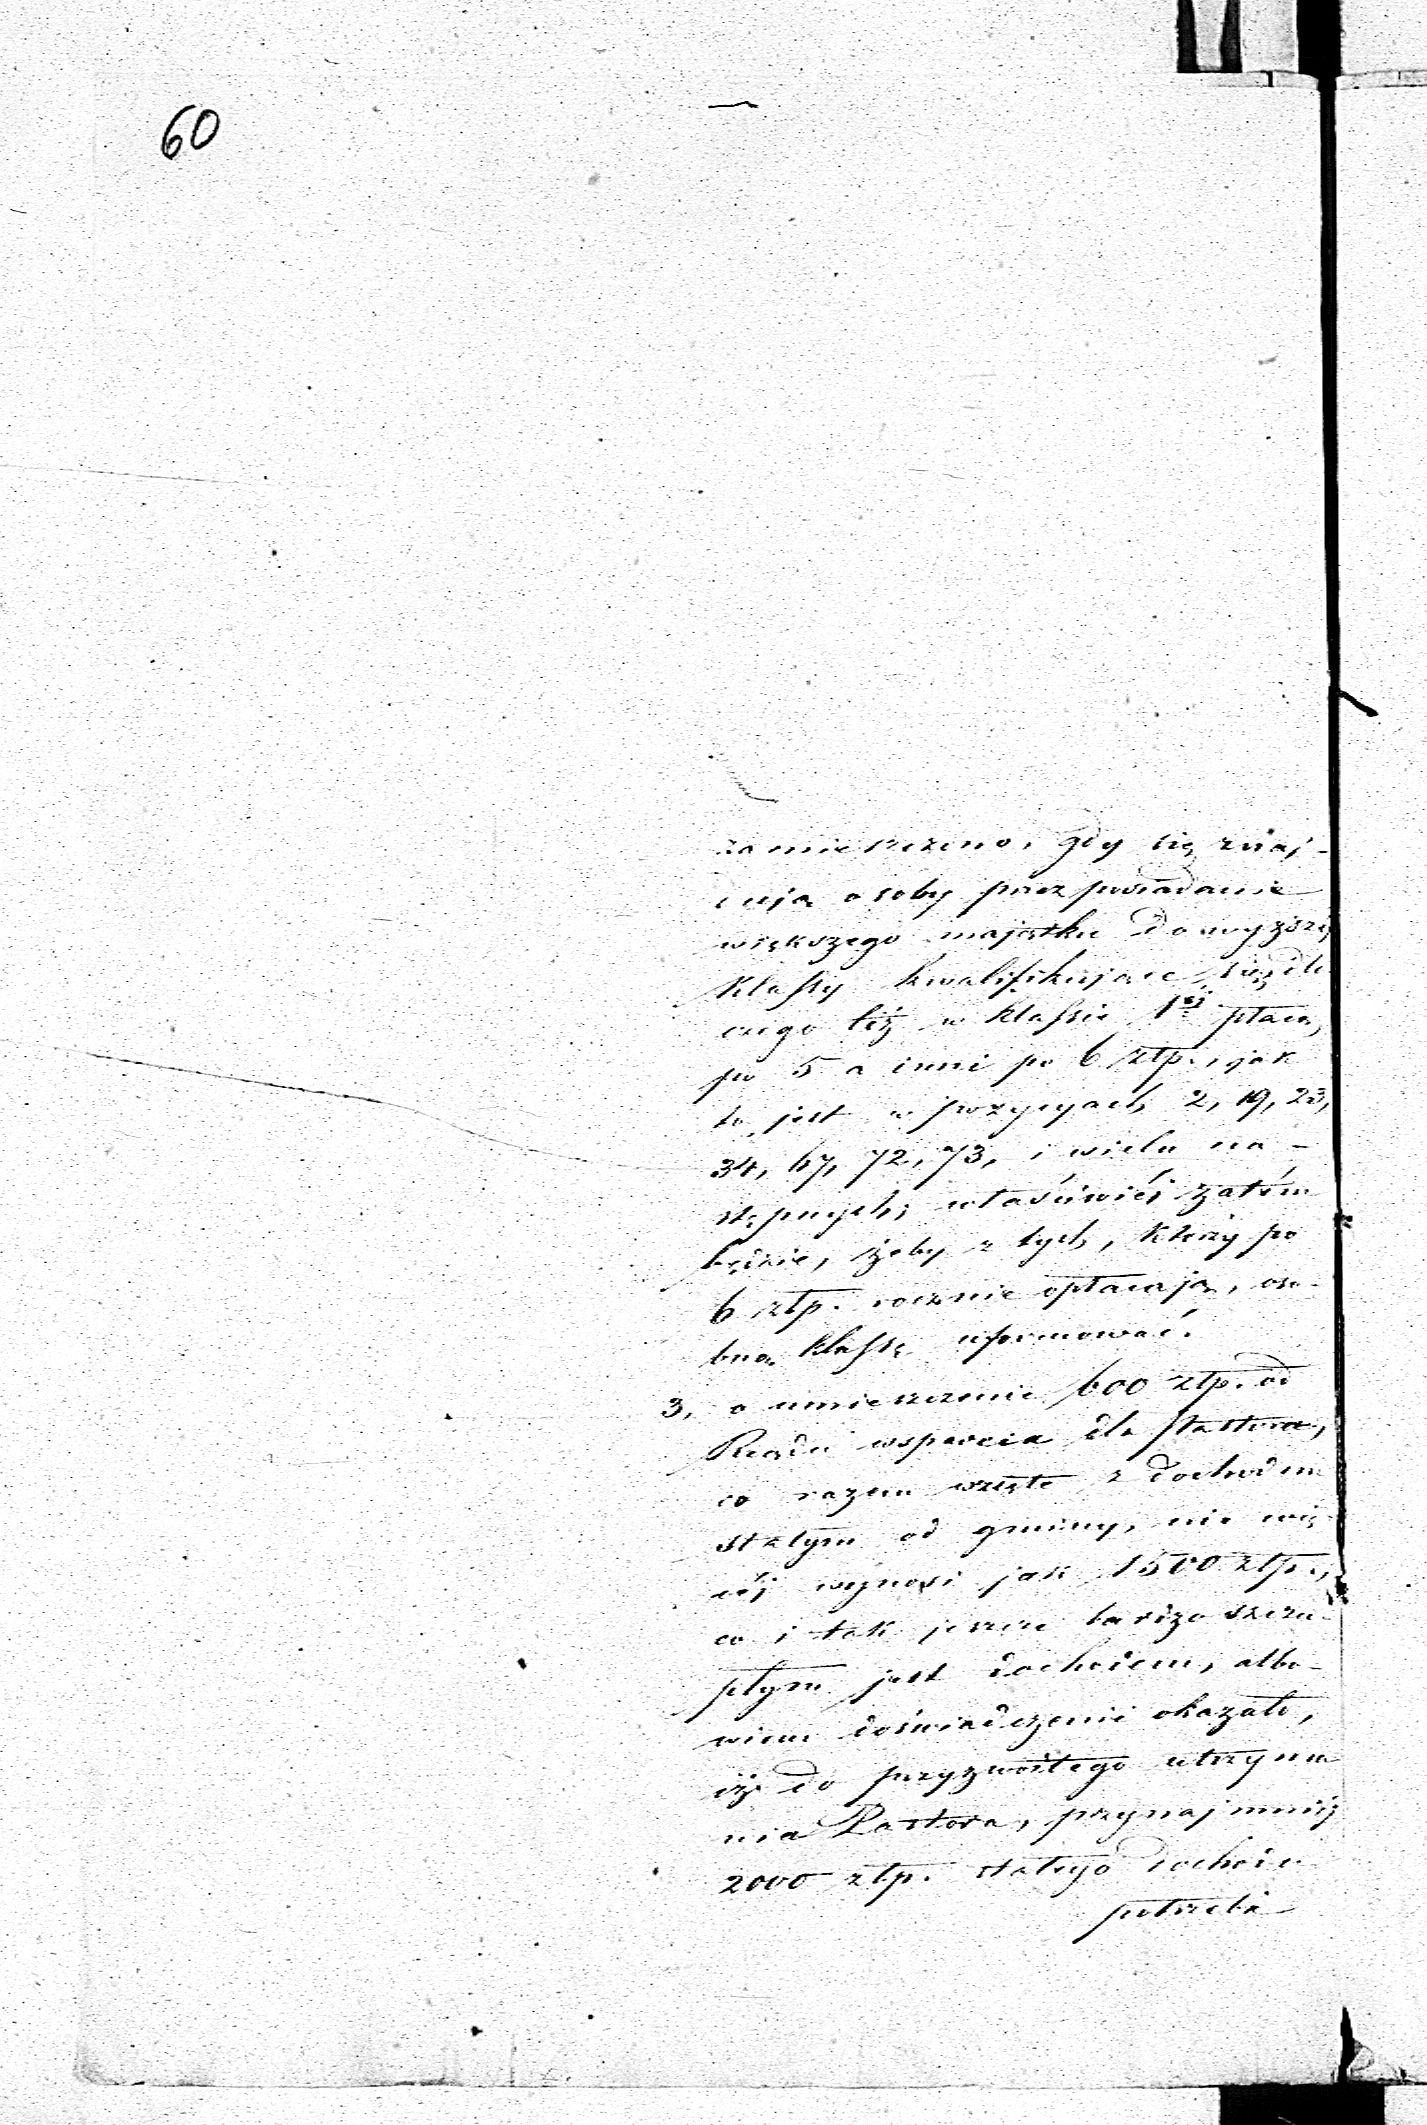 60
zamieszczeno, gdy się znaj-
dują osoby przez posiadanie
większego majątku do wyższéj
Klassy kwalifikujące się, dla
czego też w klassie 1szj płacą
po 5 a inni po 6 złp., jak
to jest w pozycyach 2, 19, 23,
34, 67, 72, 73, i wielu na-
stępnych; właściwiéj zatém
będzie, żeby z tych, którzy po
6 złp. rocznie opłacają, oso-
bną klassę uformować.
3, o umieszczenie 600 złp. od
Rządu wsparcia dla Pastora,
co razem wzięte z dochodem
stałym od gminy, nie wię-
céj wynosi jak 1500 złp.,
co i tak jeszcze bardzo szczu-
płym jest dochodem, albo-
wiem doświadczenie okazało,
iż do przyzwoitego utrzyma
nia Pastora, przynajmniéj
2000 złp. stałego dochodu
potrzeba